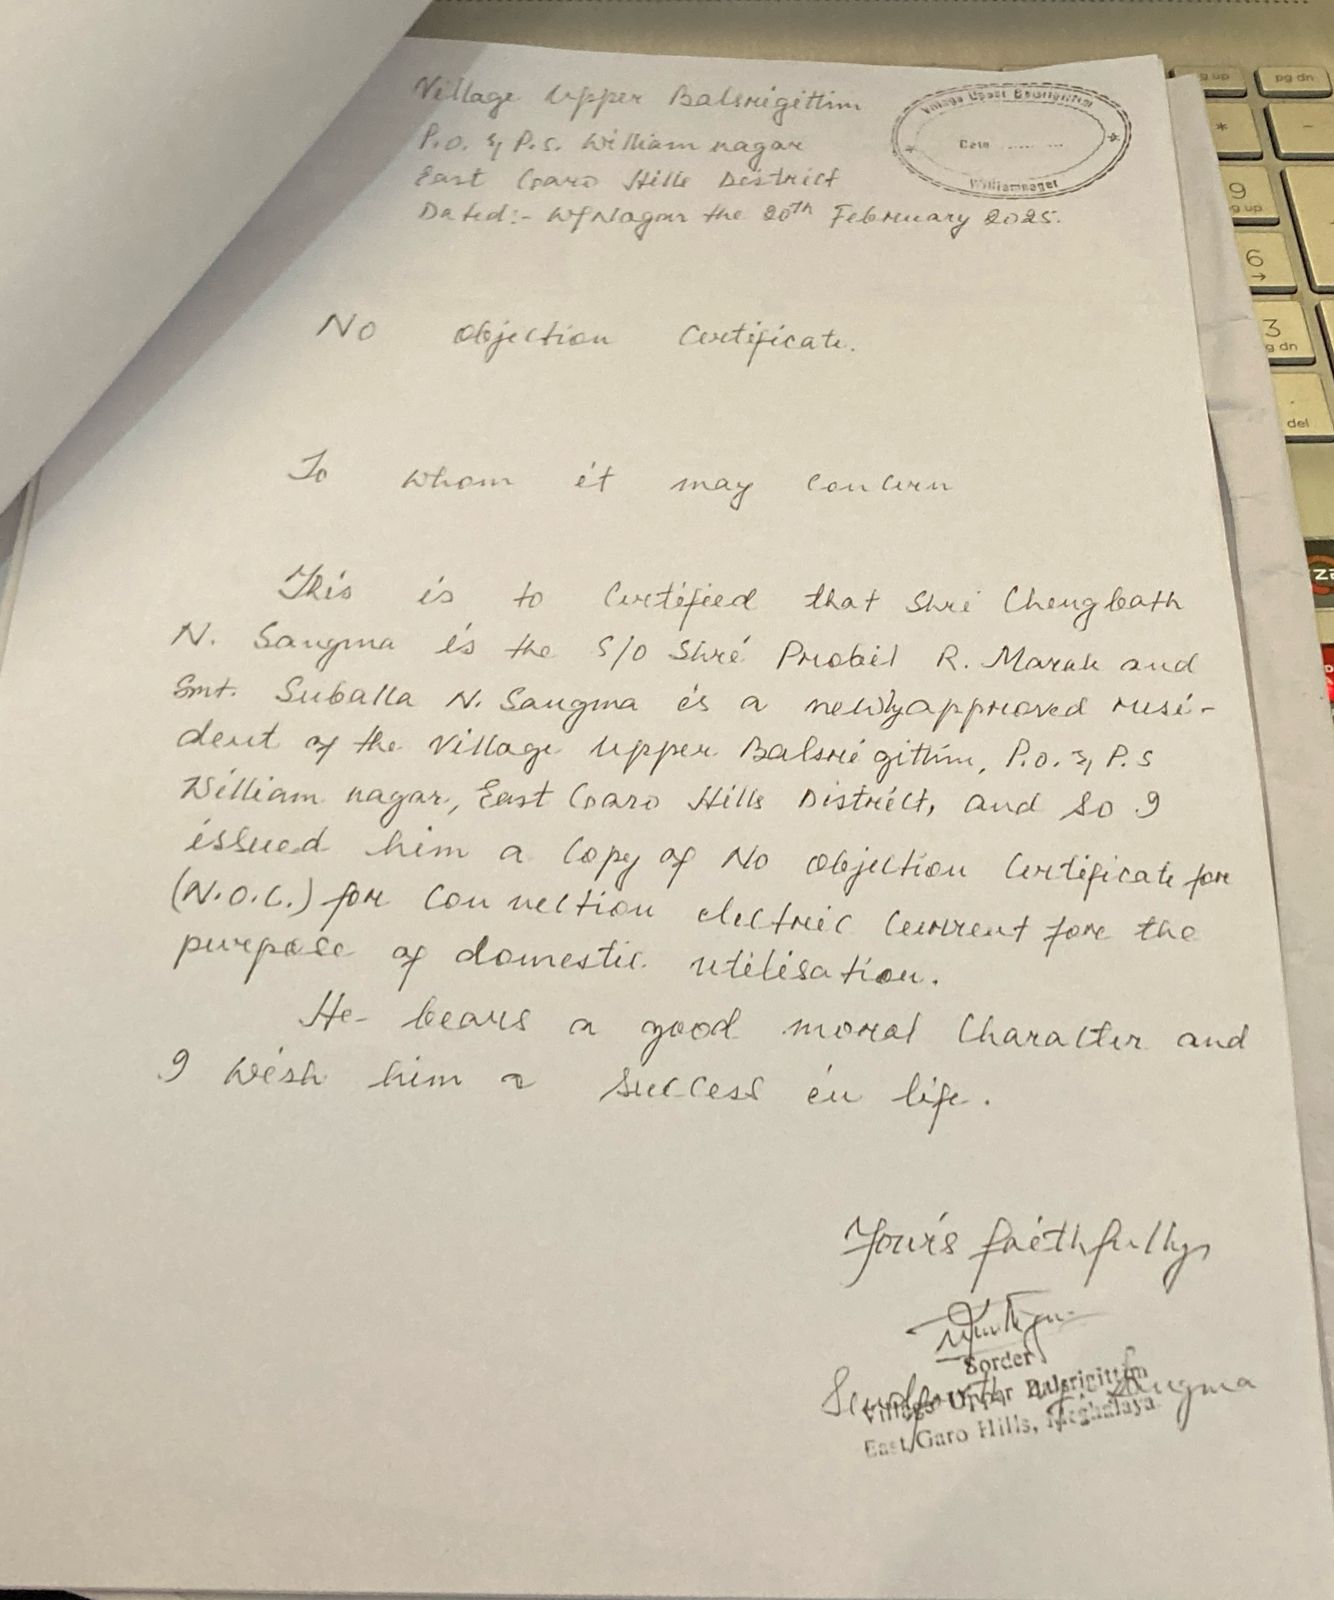 Village Upper Balsrigittim
P.O. & P.S. William nagar
East Garo Hills District
Dated:- W/Nagar the 20th February 2025.
Village Upper Balsrigittim
Date ..... ...
Williamnagar
No Objection Certificate.
To whom it may concern
This is to certified that Shri Chengbath
N. Sangma is the S/O Shri Probil R. Marak and
Smt. Suballa N. Sangma is a newly approved resi-
dent of the Village Upper Balsrigittim, P.O. & P.S
William nagar, East Garo Hills District, and so I
issued him a copy of No Objection Certificate for
(N.O.C.) for connection electric current for the
purpose of domestic utilisation.
He bears a good moral character and
I wish him a success in life.
Your's faithfully
Sorder
Sangma
Village Upper Balsrigittim
East Garo Hills, Meghalaya
pg up
pg dn
*
-
9
pg up
6
→
3
pg dn
.
del